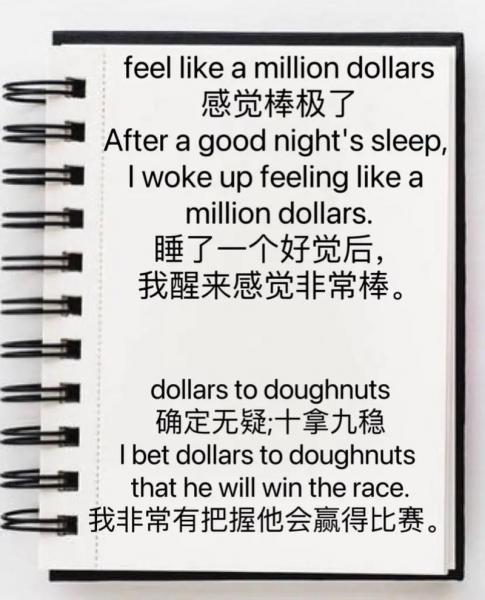 feel like a million dollars
感觉棒极了
After a good night's sleep,
I woke up feeling like a
million dollars.
睡了一个好觉后，
我醒来感觉非常棒。
dollars to doughnuts
确定无疑;十拿九稳
I bet dollars to doughnuts
that he will win the race.
我非常有把握他会赢得比赛。